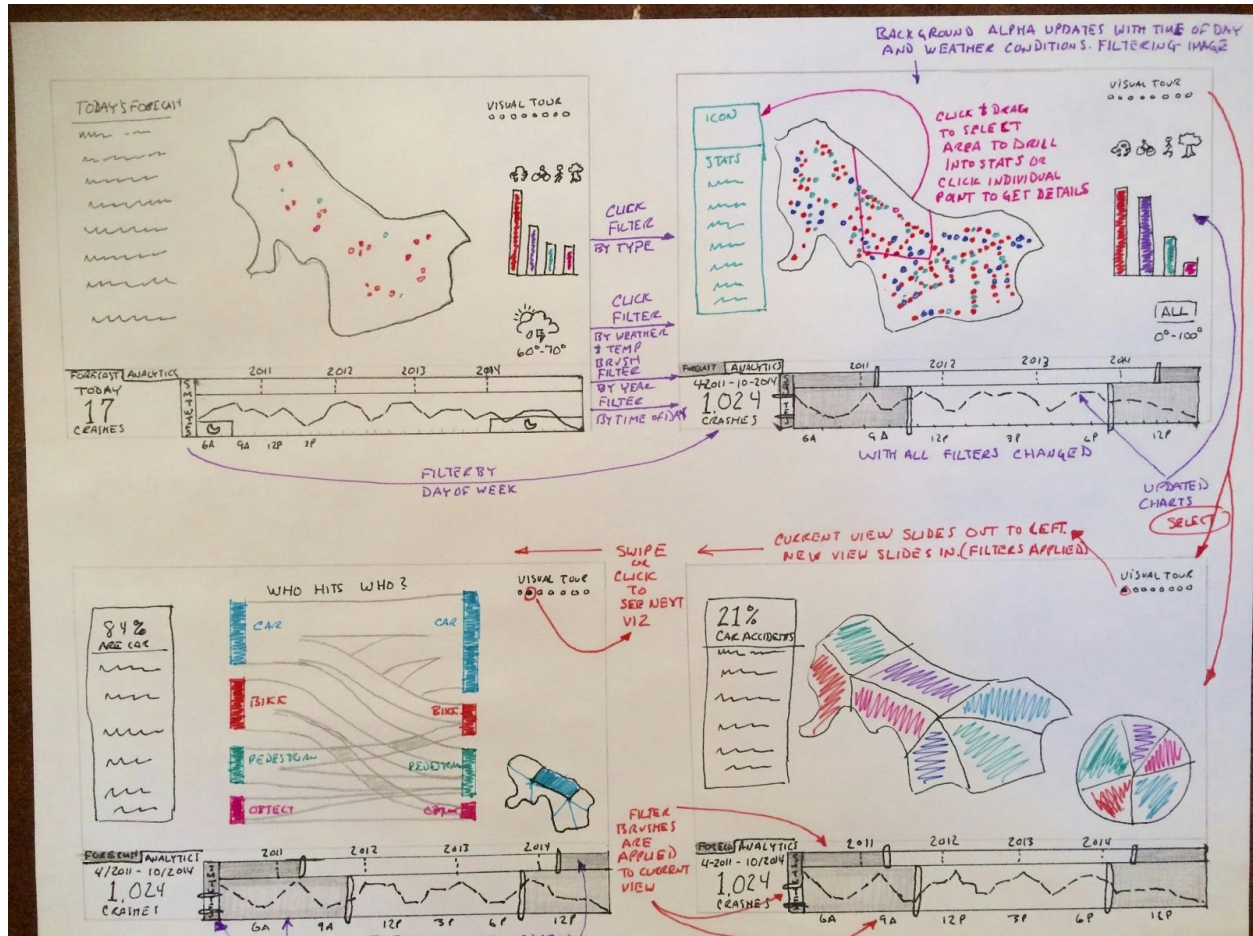 BACKGROUND ALPHA UPDATES WITH TIME OF DAY
AND WEATHER CONDITIONS. FILTERING IMAGE
TODAY'S FORECAST
VISUAL TOUR
60°-70°
FORECAST ANALYTICS
TODAY
17
CRASHES
2011 2012 2013 2014
6A 9A 12P 3P
CLICK
FILTER
BY TYPE
CLICK
FILTER
BY WEATHER
& TEMP
BRUSH
FILTER
BY YEAR
FILTER
BY TIME OF DAY
FILTER BY
DAY OF WEEK
ICON
STATS
CLICK & DRAG
TO SELECT
AREA TO DRILL
INTO STATS OR
CLICK INDIVIDUAL
POINT TO GET DETAILS
VISUAL TOUR
ALL
0°-100°
FORECAST ANALYTICS
4-2011-10-2014
1,024
CRASHES
2011 2012 2013 2014
6A 9A 12P 3P 6P 12P
WITH ALL FILTERS CHANGED
UPDATED
CHARTS
SELECT
CURRENT VIEW SLIDES OUT TO LEFT.
NEW VIEW SLIDES IN. (FILTERS APPLIED)
SWIPE
OR
CLICK
TO
SEE NEXT
VIZ
WHO HITS WHO?
VISUAL TOUR
84%
ARE CAR
CAR CAR
BIKE BIKE
PEDESTRIAN PEDESTRIAN
OBJECT OBJECT
FORECAST ANALYTICS
4/2011 - 10/2014
1,024
CRASHES
2011 2012 2013 2014
6A 9A 12P 3P 6P 12P
FILTER
BRUSHES
ARE
APPLIED
TO CURRENT
VIEW
VISUAL TOUR
21%
CAR ACCIDENTS
FORECAST ANALYTICS
4-2011 - 10/2014
1,024
CRASHES
2011 2012 2013 2014
6A 9A 12P 3P 6P 12P